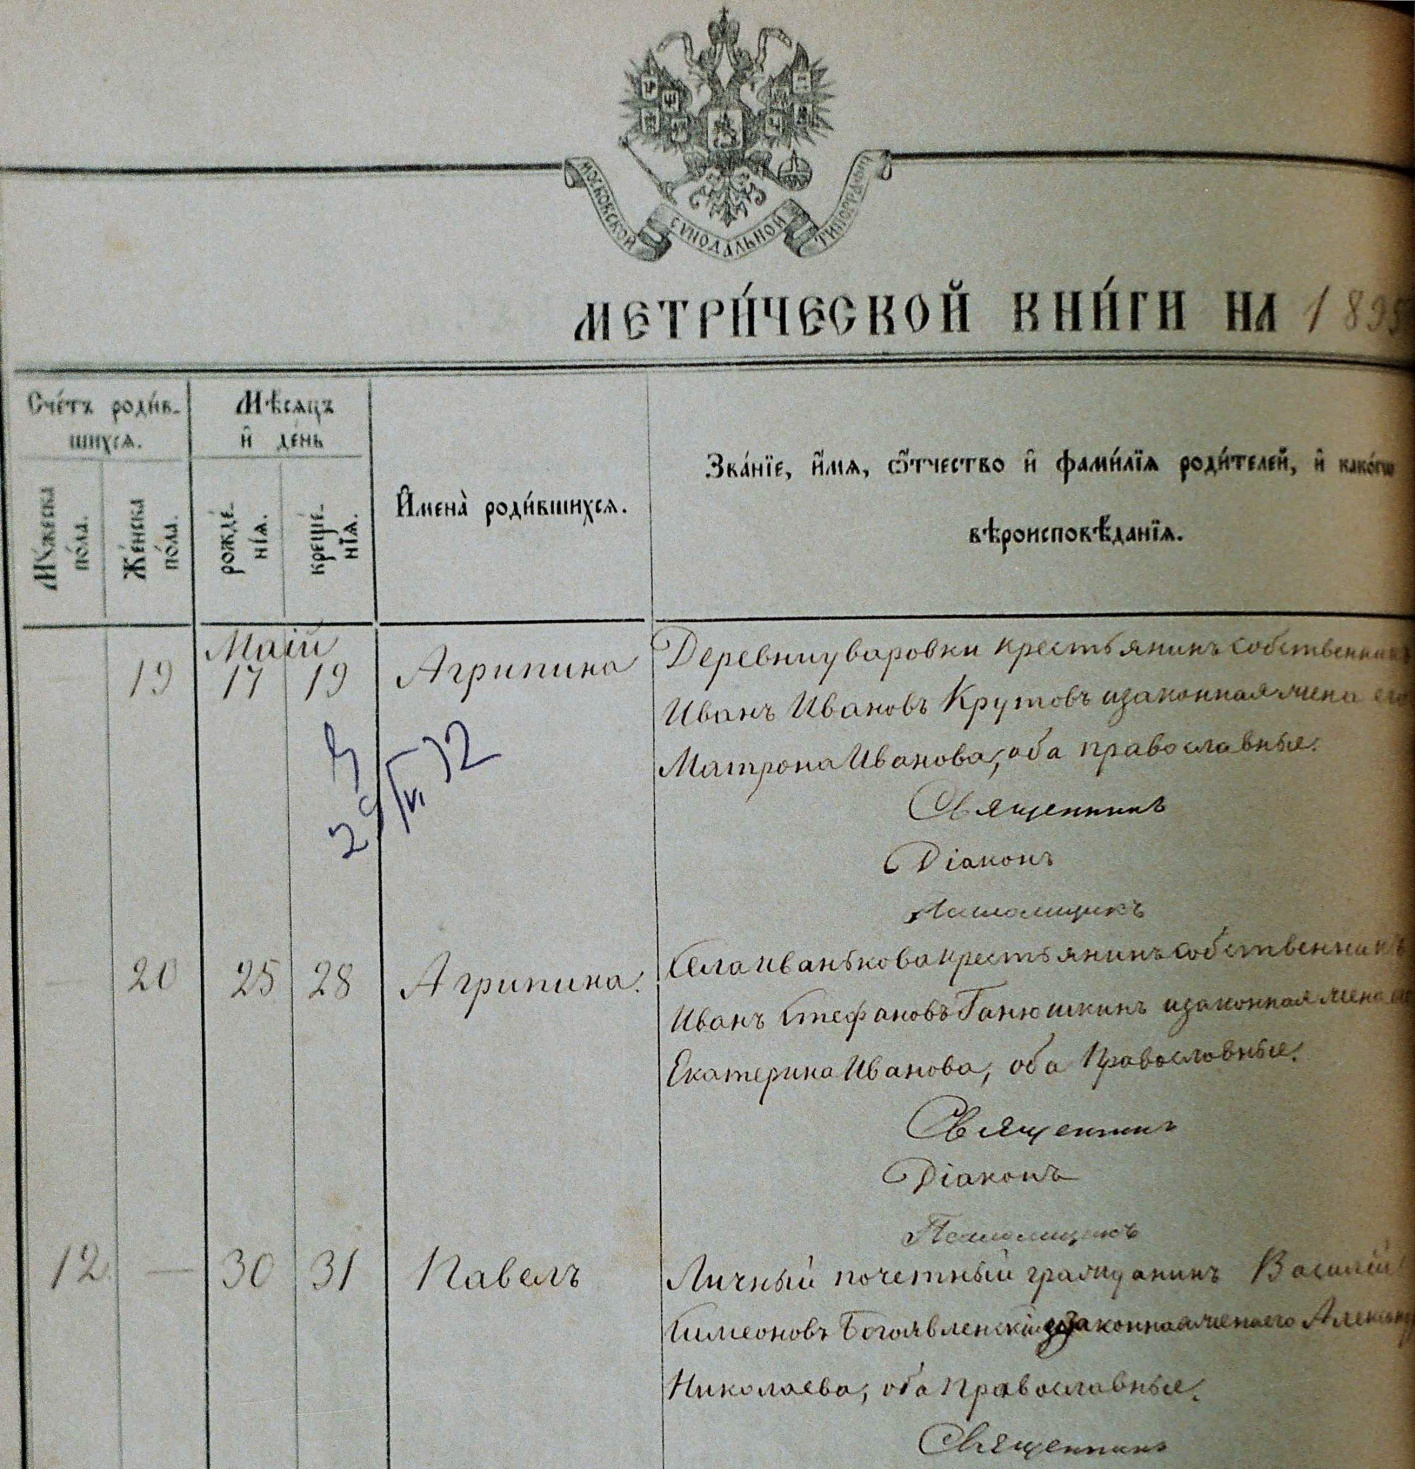 МОСКОВСКОЙ СѴНОДАЛЬНОЙ ТИПОГРАФІИ
МЕТРИ́ЧЕСКОЙ КНИ́ГИ НА 1895
Сче́тъ роди́в-
шихсѧ.
Мꙋ́жеска
по́ла.
Же́нска
по́ла.
Мѣ́сѧцъ
и҆ де́нь
рожде́-
нїѧ.
креще́-
нїѧ.
И҆мена̀ роди́вшихсѧ.
Зва́нїе, и҆́мѧ, ѻ҆́тчество и҆ фами́лїѧ роди́телей, и҆ како́гѡ
вѣроисповѣ́данїѧ.
Маій
19 17 19 Агрипина Деревни Уваровки крестьянинъ собственникъ
Иванъ Ивановъ Крутовъ и законная жена его
Матрона Иванова, оба православные.
29/VI 32
Священникъ
Діаконъ
Псаломщикъ
— 20 25 28 Агрипина. Села Иванькова крестьянинъ собственникъ
Иванъ Стефановъ Ганюшкинъ и законная жена его
Екатерина Иванова, оба Православные.
Священникъ
Діаконъ
Псаломщикъ
12 — 30 31 Павелъ Личный почетный гражданинъ Василій
Симеоновъ Богоявленскій и законная жена его
Николаева, оба Православные.
Священникъ